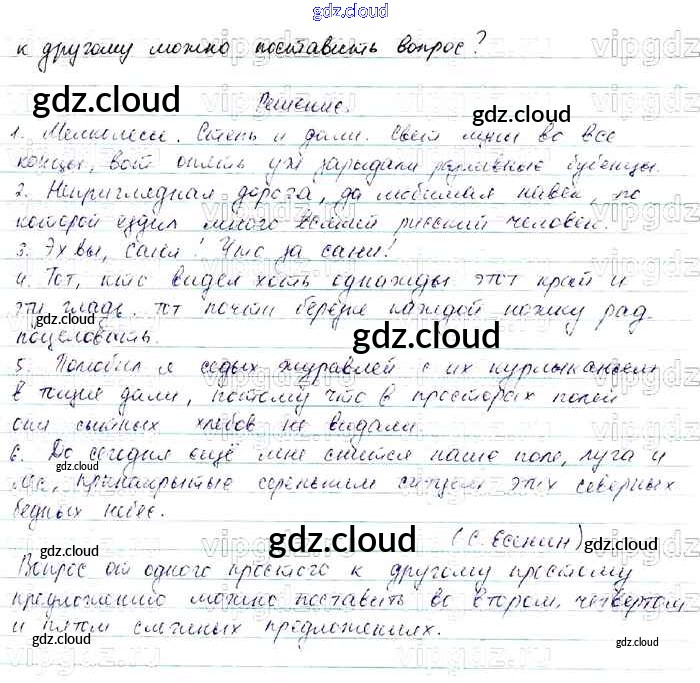 gdz.cloud
к другому можно поставить вопрос?
gdz.cloud
Решение.
gdz.cloud
1. Мелколесье. Степь и дали. Свет луны во все
концы, вот опять уж зарыдали разливные бубенцы.
2. Неприглядная дорога, да любимая навек, по
которой ездил много всякий русский человек.
3. Эх вы, сани! Что за сани!
4. Тот, кто видел хоть однажды этот край и
эту гладь, тот почти берёзке каждой ножку рад
gdz.cloud
gdz.cloud
поцеловать.
gdz.cloud
5. Полюбил я седых журавлей с их курлыканьем
в тощие дали, потому что в просторах полей
они сытных хлебов не видали.
6. До сегодня ещё мне снится наше поле, луга и
gdz.cloud
gdz.cloud
лес, принакрытые сереньким ситцем этих северных
бедных небес.
(С. Есенин)
gdz.cloud
gdz.cloud
gdz.cloud
Вопрос от одного простого к другому простому
предложению можно поставить во втором, четвертом
и пятом сложных предложениях.
gdz.cloud
gdz.cloud